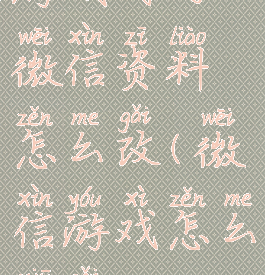 wēi xìn zī liào
微信资料
zěn me gǎi wēi
怎么改(微
xìn yóu xì zěn me
信游戏怎么